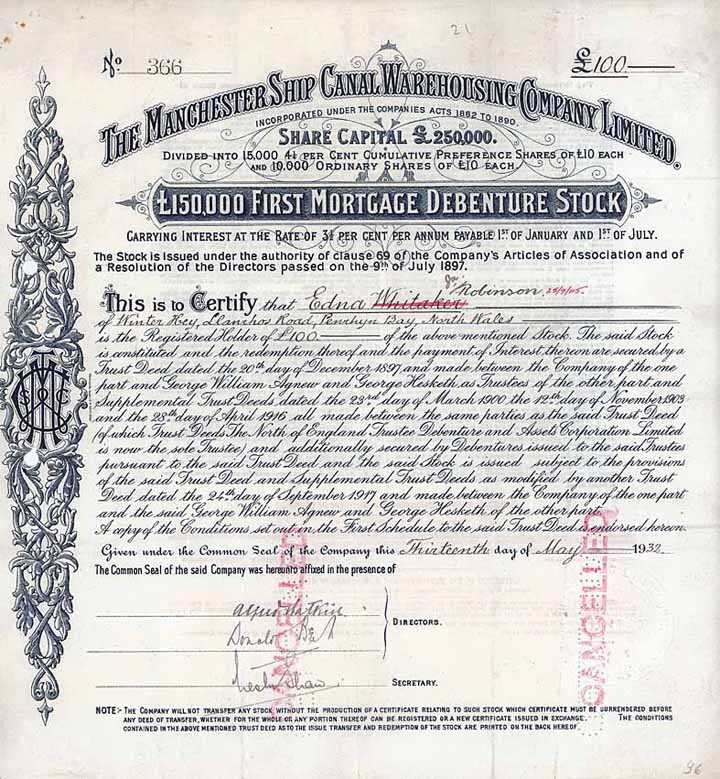 21
No. 366 £100
THE MANCHESTER SHIP CANAL WAREHOUSING COMPANY LIMITED.
INCORPORATED UNDER THE COMPANIES ACTS 1862 TO 1890.
SHARE CAPITAL £250,000.
DIVIDED INTO 15,000 4½ PER CENT CUMULATIVE PREFERENCE SHARES OF £10 EACH
AND 10,000 ORDINARY SHARES OF £10 EACH
£150,000 FIRST MORTGAGE DEBENTURE STOCK
CARRYING INTEREST AT THE RATE OF 3½ PER CENT PER ANNUM PAYABLE 1ST OF JANUARY AND 1ST OF JULY.
The Stock is Issued under the authority of clause 69 of the Company's Articles of Association and of
a Resolution of the Directors passed on the 9th of July 1897.
This is to Certify that Edna Whitaker Robinson
of Winter Hey, Llanrhos Road, Penrhyn Bay, North Wales
is the Registered Holder of £100 of the above mentioned Stock. The said Stock
is constituted and the redemption thereof and the payment of Interest thereon are secured by a
Trust Deed dated the 20th day of December 1897 and made between the Company of the one
part and George William Agnew and George Hesketh as Trustees of the other part and
Supplemental Trust Deeds dated the 23rd day of March 1900 the 12th day of November 1903
and the 28th day of April 1916 all made between the same parties as the said Trust Deed
(of which Trust Deeds The North of England Trustee Debenture and Assets Corporation Limited
is now the sole Trustee) and additionally secured by Debentures issued to the said Trustees
pursuant to the said Trust Deed and the said Stock is issued subject to the provisions
of the said Trust Deed and Supplemental Trust Deeds as modified by another Trust
Deed dated the 24th day of September 1917 and made between the Company of the one part
and the said George William Agnew and George Hesketh of the other part.
A copy of the Conditions set out in the First Schedule to the said Trust Deed is endorsed hereon.
Given under the Common Seal of the Company this Thirteenth day of May 1932.
The Common Seal of the said Company was hereunto affixed in the presence of
DIRECTORS.
SECRETARY.
CANCELLED
CANCELLED
NOTE:- THE COMPANY WILL NOT TRANSFER ANY STOCK WITHOUT THE PRODUCTION OF A CERTIFICATE RELATING TO SUCH STOCK WHICH CERTIFICATE MUST BE SURRENDERED BEFORE
ANY DEED OF TRANSFER, WHETHER FOR THE WHOLE OR ANY PORTION THEREOF CAN BE REGISTERED OR A NEW CERTIFICATE ISSUED IN EXCHANGE. THE CONDITIONS
CONTAINED IN THE ABOVE MENTIONED TRUST DEED AS TO THE ISSUE TRANSFER AND REDEMPTION OF THE STOCK ARE PRINTED ON THE BACK HEREOF.
96